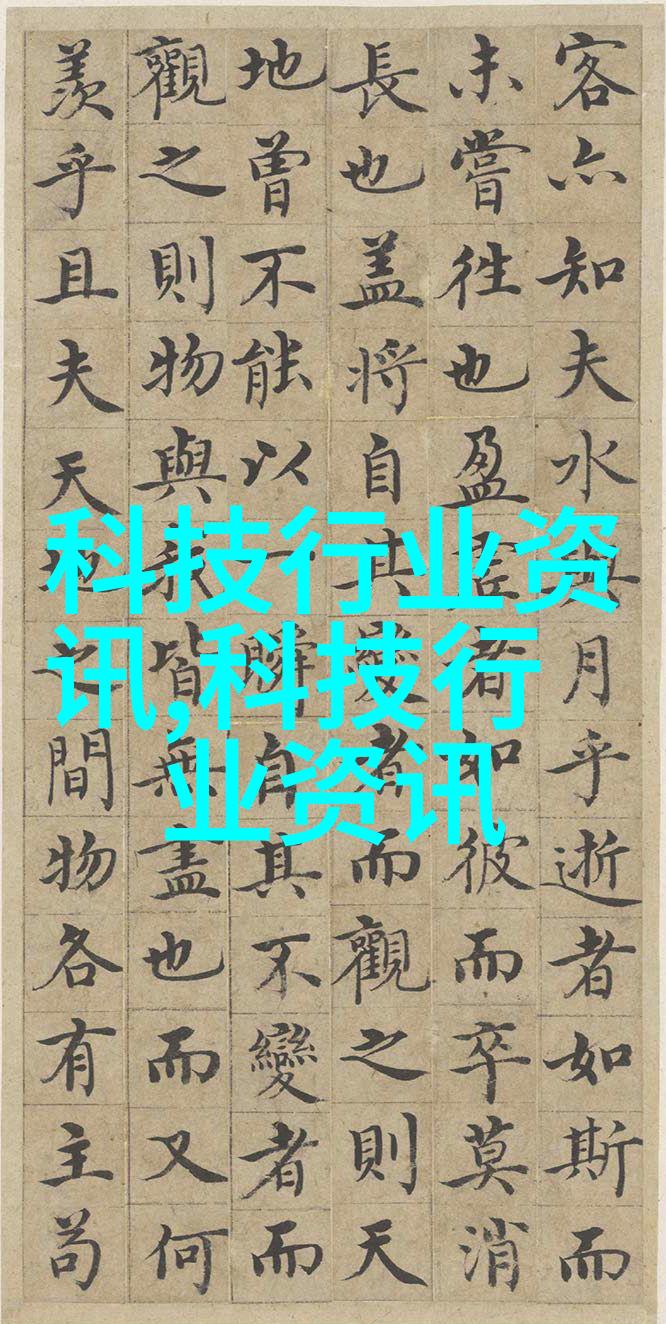 客亦知夫水與月乎逝者如斯而
未嘗往也盈虛者如彼而卒莫消
長也盖將自其變者而觀之則天
地曾不能以一瞬自其不變者而
觀之則物與我皆無盡也而又何
羨乎且夫天地之間物各有主苟
科技行业资
讯,科技行
业资讯